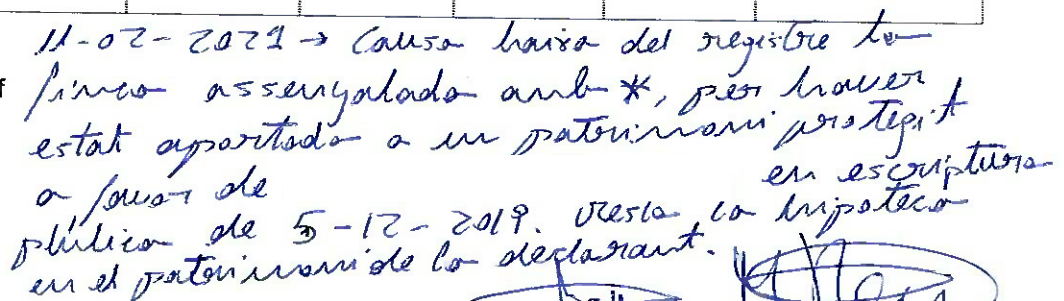 11-02-2021 → Causa baixa del registre la
finca assenyalada amb *, per haver
estat aportada a un patrimoni protegit
a favor de en escriptura
pública de 5-12-2019. Resta la hipoteca
en el patrimoni de la declarant.